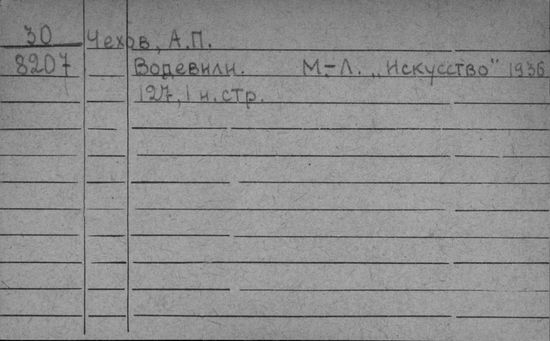 30 Чехов, А.П.
8207 Водевили. М.-Л. „Искусство" 1936
127, 1 н. стр.